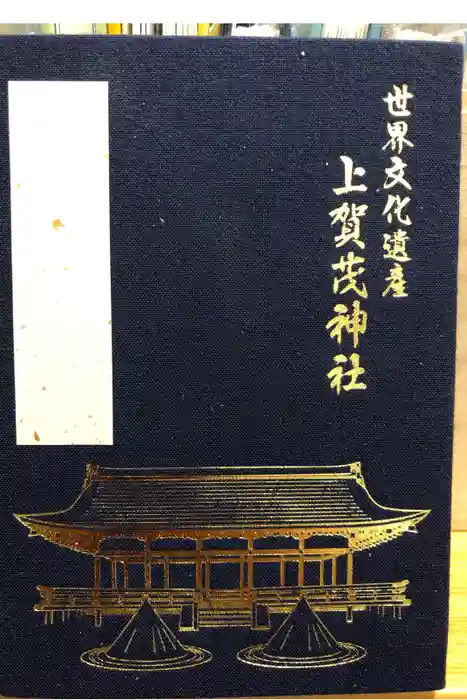 世界文化遺產
上賀茂神社